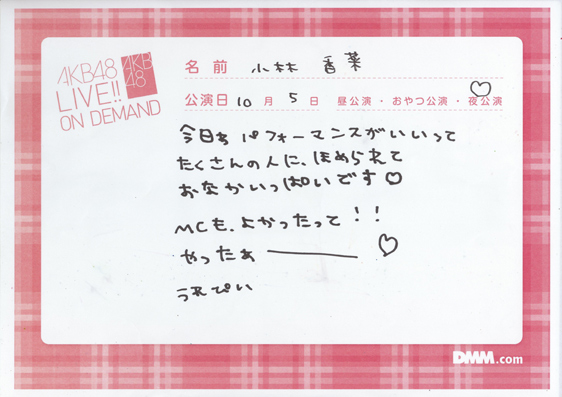 AKB48
LIVE!!
ON DEMAND
AKB
48
名前 小林 香菜
公演日 10月5日 昼公演・おやつ公演・夜公演
今日も パフォーマンスがいいって
たくさんの人に、ほめられて
おなかいっぱいです♡
MCも、よかったって!!
やったぁ――― ♡
うれぴい
DMM.com